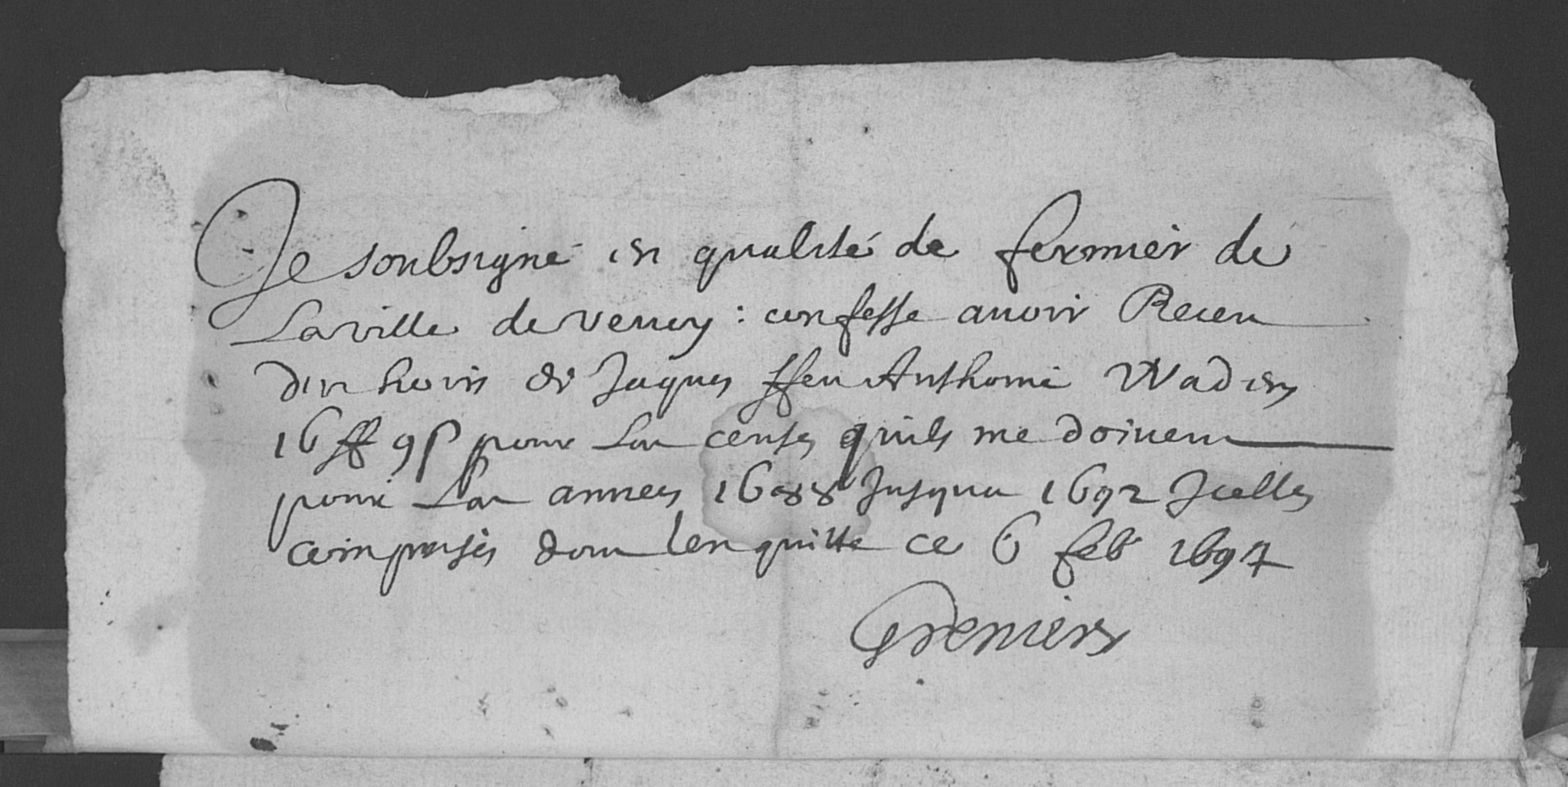 Je soubsigné en qualité de fermier de
La ville de vevey : confesse avoir Receu
des hoirs de Jaques ffeu Anthoine Wadens
16 ff 9 s pour La cense quils me doivent
pour Les annees 1688 Jusqua 1692 Icelles
comprises dont Len quitte ce 6 feb 1694
Grenier